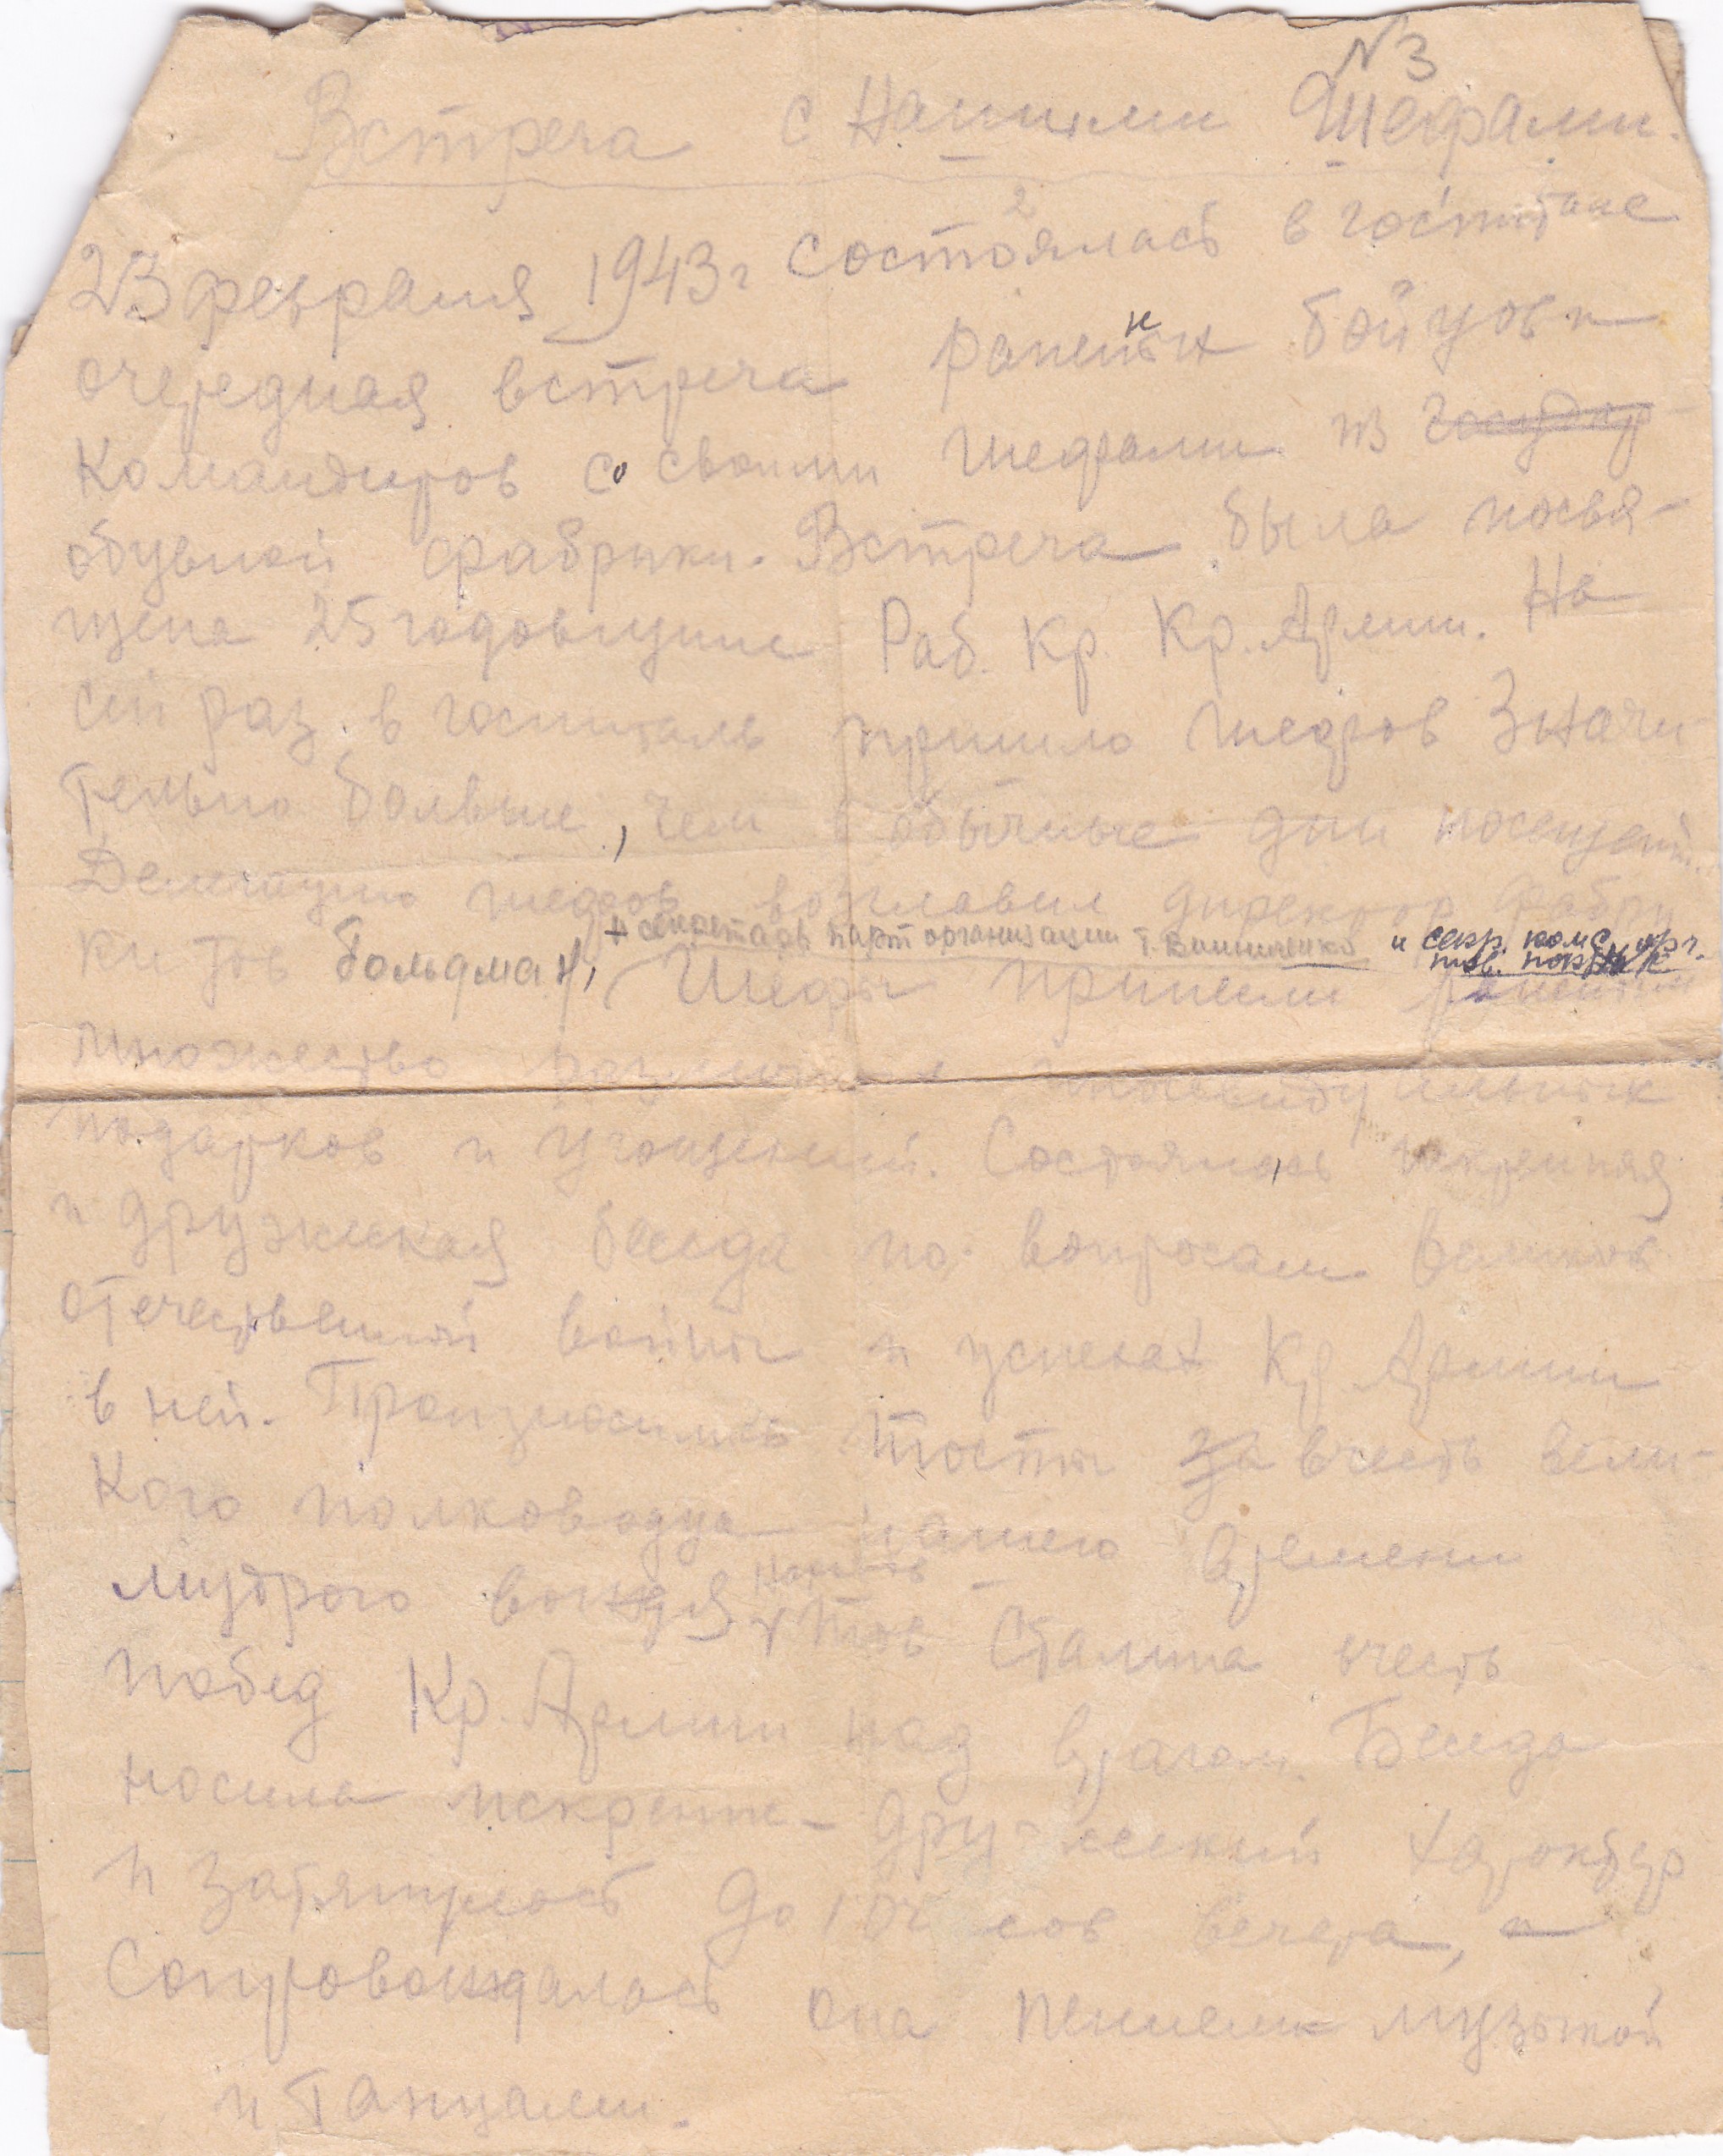 N 3
Встреча с Нашими Шефами.
23 февраля 1943 г состоялась в госпитале
очередная встреча раненых бойцов и
Командиров со своими шефами из
обувной фабрики. Встреча была посвя-
щена 25 годовщине Раб. Кр. Кр. Армии. На
сей раз в госпиталь пришло шефов Значи-
тельно больше, чем в обычные дни посещений.
Делегацию шефов возглавил директор фабри
и секретарь парторганизации т. и секр. комс. орг.
ки тов Гольдман, Шефы принесли раненым
тов.
множество различных индивидуальных
подарков и угощений. Состоялась искренняя
и дружеская беседа по вопросам великой
отечественной войны и успехах Кр Армии
в ней. Произносились тосты за вчесть вели-
кого полководца нашего времени
мудрого вождя тов Сталина вчесть
побед Кр. Армии над врагом. Беседа
носила искренне-дружеский характер
и затянулась до 10 часов вечера, и
Сопровождалась она пением музыкой
и танцами.